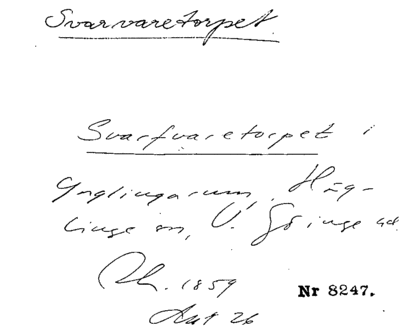 Svarvaretorpet.
Svarfvaretorpet i
Ynglingarum, Häg-
linge sn, V. Göinge hd.
Rh. 1859
Nr 8247.
Aut 26